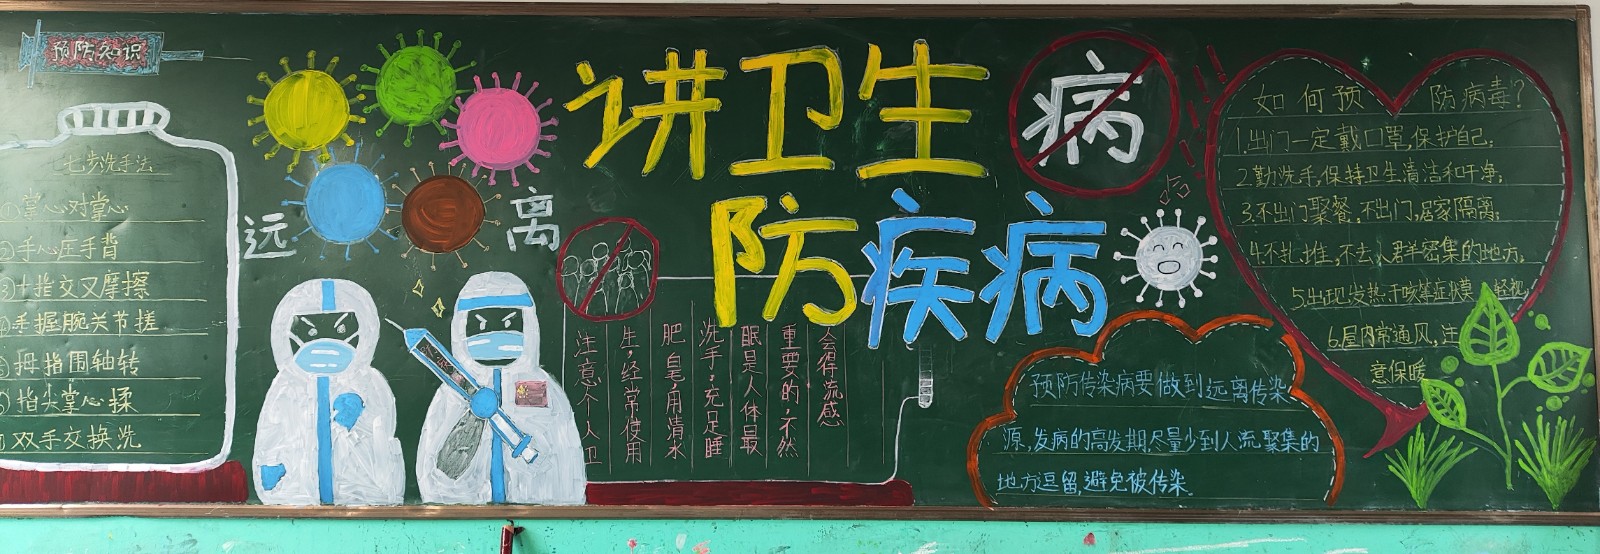 预防知识
七步洗手法
①掌心对掌心
②手心压手背
③十指交叉摩擦
④手握腕关节搓
⑤拇指围轴转
⑥指尖掌心揉
双手交换洗
远离
讲卫生
防疾病
病
注意个人卫
生,经常使用
肥皂,用清水
洗手;充足睡
眠是人体最
重要的,不然
会得流感
预防传染病要做到远离传染
源,发病的高发期尽量少到人流聚集的
地方逗留,避免被传染。
如何预防病毒?
1.出门一定戴口罩,保护自己;
2.勤洗手,保持卫生清洁和干净;
3.不出门聚餐,不出门,居家隔离;
4.不扎堆,不去人群密集的地方;
5.出现发热干咳等症状莫轻视;
6.屋内常通风,注
意保暖